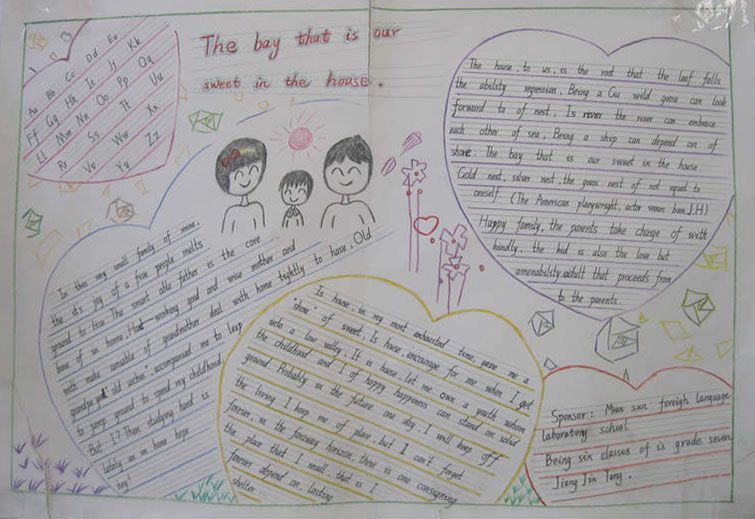 The bay that is our
sweet in the house.
Aa Bb Cc Dd Ee
Ff Gg Hh Ii Jj Kk
Ll Mm Nn Oo Pp Qq
Rr Ss Tt Uu
Vv Ww Xx
Yy Zz
The house, to us, is the root that the leaf falls
the ability regression, Being a Cu wild goose can look
forward to of nest. Is never the river can embrace
each other of sea, Being a ship can depend on of
shore. The bay that is our sweet in the house
Gold nest, silver nest, the grass nest of not equal to
oneself (The American playwright, actor
Happy family, the parents take charge of with
kindly, the kid is also the love but
amenability adult that proceeds from
to the parents.
In this my small family of mine,
the it's joy of a five people melts
ground to live. The smart able father is the core
bone of in home. Hard-working good and wise mother and
with make amiable of grandmother deal with home tightly to have. Old
grandpa "old urchin" accompanied me to leap
to jump ground to spend my childhood.
But I? Then studying hard is
lately an in home hope
hey!
Is house, in my most exhausted time, gave me a
"shine" of sweet. Is house, encourage for me when I get
into a low valley. It is house, let me own a youth whom
the childhood and I of happy happiness can stand on solid
ground. Probably in the future one day, I will keep off
the living I keep me of place, but I can't forget
forever, in the faraway horizon, there is one consigning
the place that I mall, that is I
forever depend on, lasting
shelter.
Sponsor: Mian sun foreigh language
laboratory school
Being sin classes of is grade seven
Jiang Jin Tong.